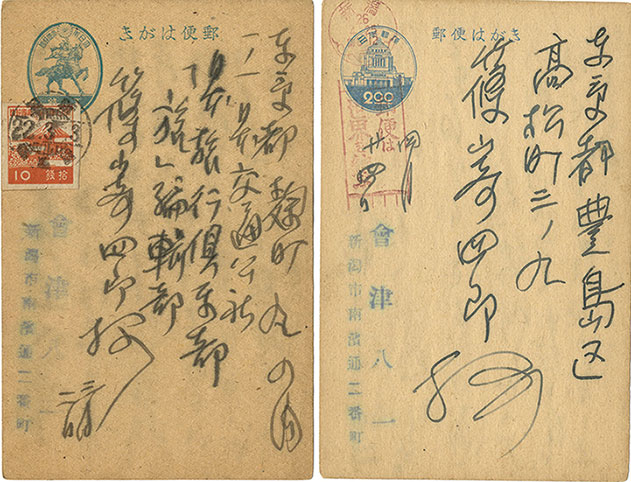 郵便はがき
東京都麹町丸の内
一ノ一日本交通公社
日本旅行倶楽部
「旅」編輯部
篠嵜四郎様
拾銭
10
22.3.3
會津八一
新潟市南濱通二番町
郵便はがき
東京都豊島区
高松町三ノ九
篠嵜四郎様
200
四月
廿四日
會津八一
新潟市南濱通二番町